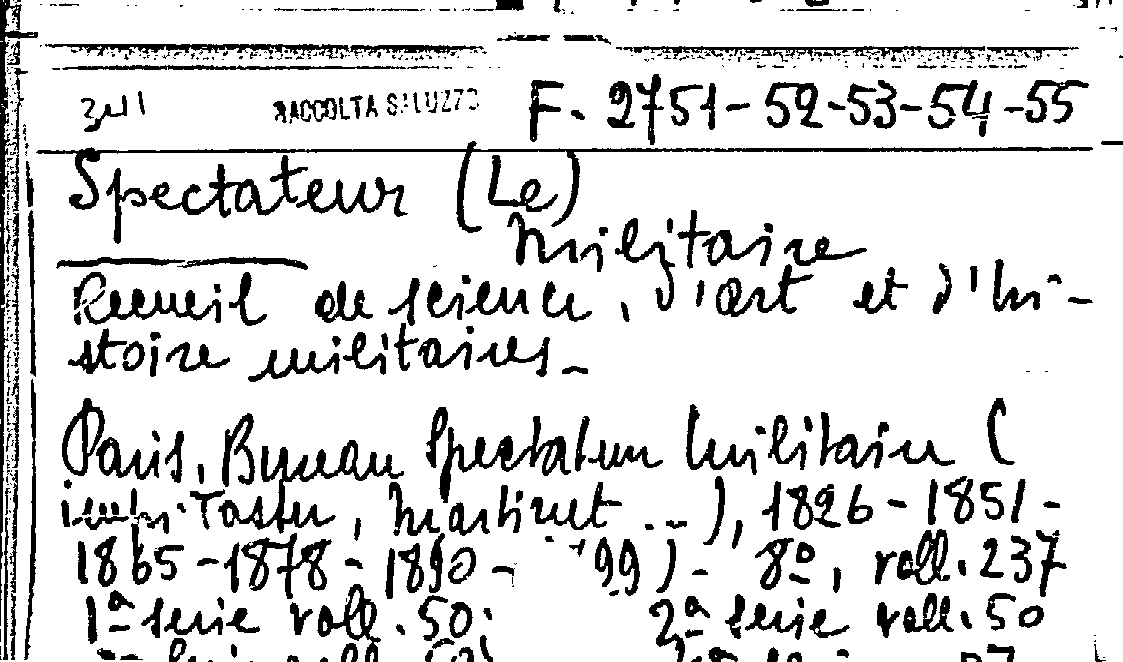 RACCOLTA SALUZZO F. 2751-52-53-54-55
Spectateur (Le)
militaire
Recueil de science, d'art et d'hi-
stoire militaires-
Paris, Bureau Spectateur Militaire (
Taster, Martinet ...), 1826-1851-
1865-1878-1890- 99)- 8º, voll. 237
1ª serie voll. 50; 2ª serie voll. 50